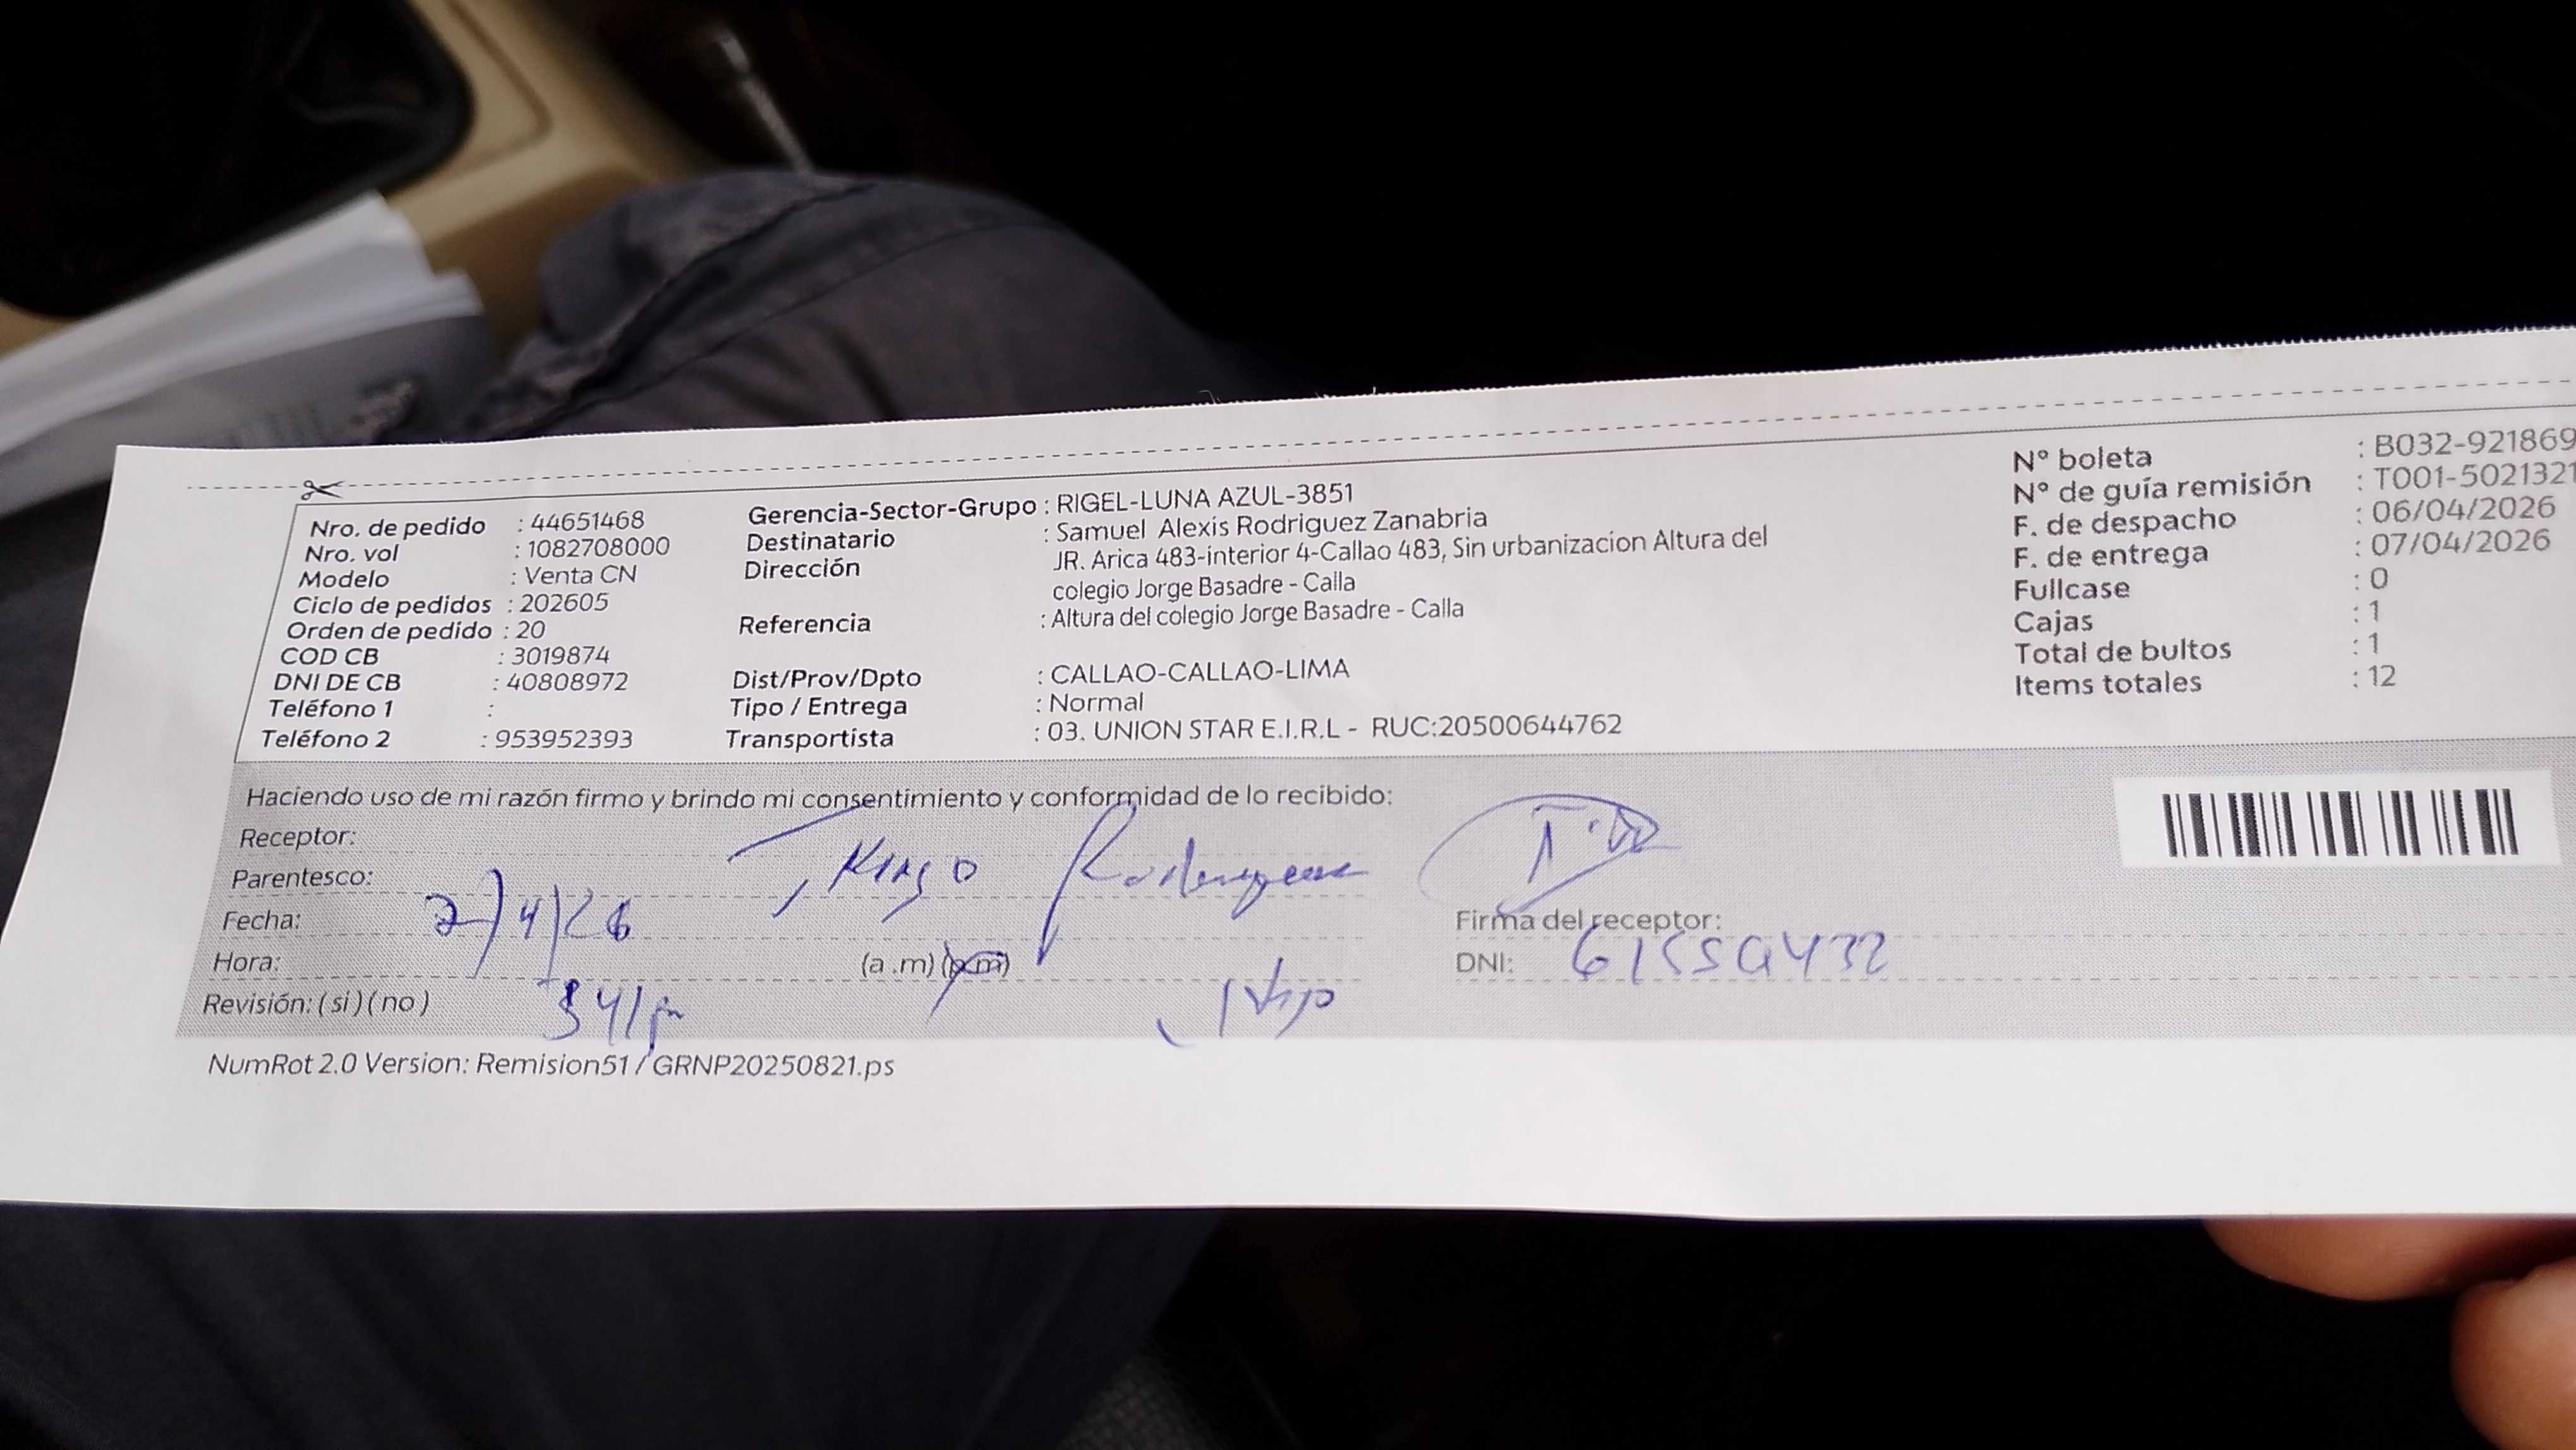 Nro. de pedido : 44651468
Nro. vol : 1082708000
Modelo : Venta CN
Ciclo de pedidos : 202605
Orden de pedido : 20
COD CB : 3019874
DNI DE CB : 40808972
Teléfono 1 :
Teléfono 2 : 953952393
Gerencia-Sector-Grupo : RIGEL-LUNA AZUL-3851
Destinatario : Samuel Alexis Rodriguez Zanabria
Dirección JR. Arica 483-interior 4-Callao 483, Sin urbanizacion Altura del
colegio Jorge Basadre - Calla
Referencia : Altura del colegio Jorge Basadre - Calla
Dist/Prov/Dpto : CALLAO-CALLAO-LIMA
Tipo / Entrega : Normal
Transportista : 03. UNION STAR E.I.R.L - RUC:20500644762
Nº boleta : B032-921869
Nº de guía remisión : T001-5021321
F. de despacho : 06/04/2026
F. de entrega : 07/04/2026
Fullcase : 0
Cajas : 1
Total de bultos : 1
Items totales : 12
Haciendo uso de mi razón firmo y brindo mi consentimiento y conformidad de lo recibido:
Receptor:
Parentesco:
Fecha: 7/4/26
Hora: (a .m) (p.m)
Revisión: ( si ) ( no ) 341pm
Firma del receptor:
DNI:
NumRot 2.0 Version: Remision51 / GRNP20250821.ps